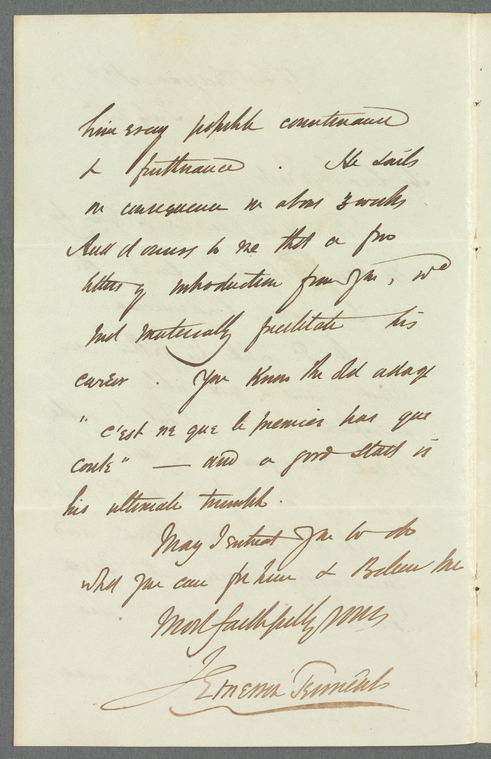 him every possible countenance
& furtherance. He sails
in consequence in about 3 weeks
And it occurs to me that a few
letters of introduction from you, wd
most materially facilitate his
career. You know the old adage
"c'est ne que le premier pas que
coute" — and a good start is
his ultimate triumph.
May I entreat you to do
what you can for him & Believe me
Most faithfully yours
J Emerson Tennent